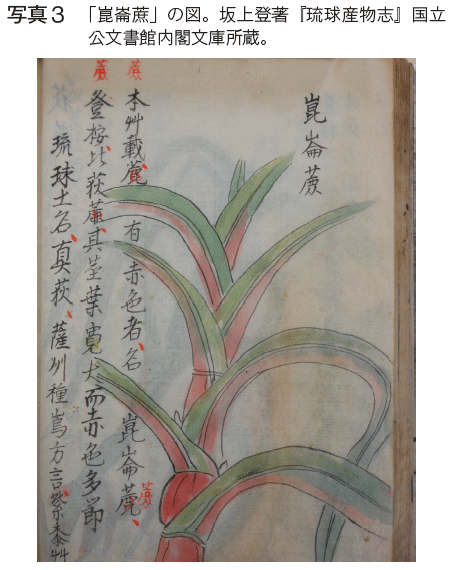 写真3 「崑崙蔗」の図。坂上登著『琉球産物志』国立
公文書館内閣文庫所蔵。
崑崙蔗
蔗
本艸載 有赤色者名 崑崙
蔗
蔗
登桉比荻蔗其茎葉寛大而赤色多節
琉球土名真荻、薩州種嶌方言紫黍艸